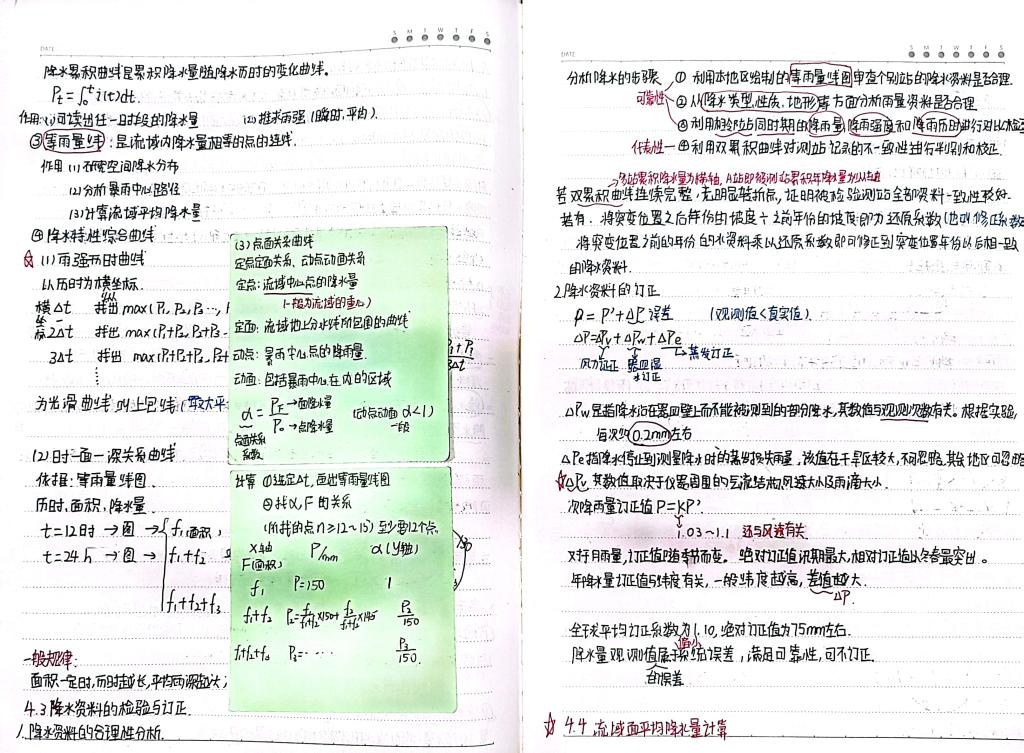 DATE
S M T W T F S
降水累积曲线是累积降水量随降水历时的变化曲线。
Pt=∫₀ᵗ i(t)dt.
作用:(1)可读出任一时段的降水量 (2)推求雨强(瞬时,平均).
③等雨量线:是流域内降水量相等的点的连线.
作用 (1)
空间降水分布
(2)分析暴雨中心路径
(3)计算流域平均降水量
④降水特性综合曲线
☆(1)雨强历时曲线
以历时为横坐标.
横 Δt 找出 max(P₁, P₂, P₃…,
2Δt 找出 max(P₁+P₂, P₂+P₃
3Δt 找出 max(P₁+P₂+P₃, P₂+
3Δt
为光滑曲线 叫上包线(最大平
(2)时—面—深关系曲线
依据:等雨量线图.
历时,面积,降水量.
t=12时 → 图 → f₁(面积)
t=24h → 图 → f₁+f₂
f₁+f₂+f₃
一般规律:
面积一定时,历时越长,平均雨深越大;
4.3降水资料的检验与订正.
1.降水资料的合理性分析.
(3)点面关系曲线
定点定面关系、动点动面关系
定点:流域中心点的降水量
(一般为流域的重心)
定面:流域地上分水线所包围的曲线
动点:暴雨中心点的降雨量.
动面:包括暴雨中心在内的区域
α = PF/P₀ →面降水量 →点降水量 (动点动面 α<1)
一段
点面关系
系数
计算 ①选定Δt,画出等雨量线图
②找α,F的关系
(所找的点n≥12~15)至少要12个点.
X轴 P/mm α(Y轴)
F(面积)
f₁ P=150 1
f₁+f₂ P₂=f₁/(f₁+f₂)×150+f₂/(f₁+f₂)×145 P₂/150
f₁+f₂+f₃ P₃=…… P₃/150.
DATE
S M T W T F S
分析降水的步骤 ①利用本地区绘制的等雨量线图审查个别站的降水资料是否合理.
可靠性 ②从降水类型,性质,地形等方面分析雨量资料是否合理.
③利用相邻站同时期的降雨量,降雨强度和降雨历时进行对比检
代表性—④利用双累积曲线对测站记录的不一致性进行判别和校正.
多站累积降水量为横轴,A站即被测站累积年降水量为纵轴
若双累积曲线连续完整,无明显转折点,证明被检验测站全部资料一致性较好.
若有:将突变位置之后年份的坡度÷之前年份的坡度即为还原系数(也叫修正系数
将突变位置之前的年份的水资料乘以还原系数即可修正到突变位置年份以后相一致
的降水资料.
2.降水资料的订正
P = P'+ΔP误差 (观测值<真实值).
ΔP=ΔPv+ΔPw+ΔPe→蒸发订正
风力订正 器皿湿
水订正
ΔPw是指降水沾在器皿壁上而不能被测到的部分降水,其数值与观测次数有关。根据实验,
每次约0.2mm左右
ΔPe指降水停止到测量降水时的蒸发损失雨量。该值在干旱区较大,不可忽略,其余地区可忽略
☆ΔPv 其数值取决于仪器周围的气流结构,风速大小及雨滴大小.
次降雨量订正值P=KP'
1.03~1.1 还与风速有关
对于月雨量,订正值随季节而变。绝对订正值汛期最大,相对订正值以冬春最突出。
年降水量订正值与纬度有关,一般纬度越高,差值越大.
ΔP.
全球平均订正系数为1.10,绝对订正值为75mm左右.
偏小
降水量观测值属于系统误差,满足可靠性,可不订正.
的误差
☆ 4.4 流域面平均降水量计算